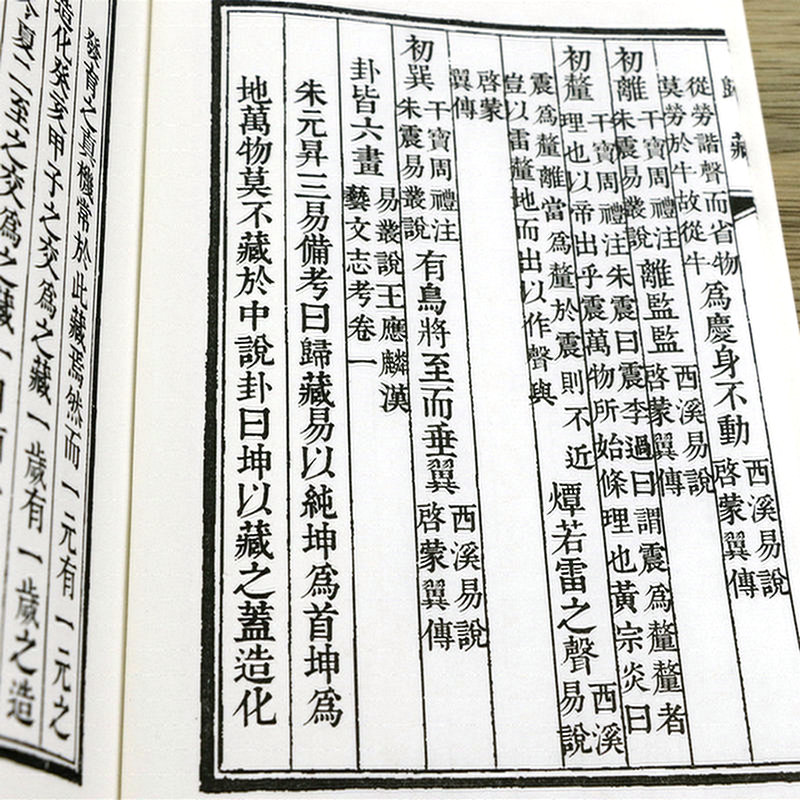 歸藏
從勞諧聲而省物
莫勞於牛故從牛
為慶身不動
西溪易說
啓蒙翼傳
初離
干寶周禮注
朱震易叢說
離監監
西溪易說
啓蒙翼傳
初釐
干寶周禮注朱震曰震李過曰謂震為釐釐者
理也以帝出乎震萬物所始條理也黃宗炎曰
震為釐離當為釐於震則不近
豈以雷釐地而出以作聲與
燂若雷之聲
西溪
易說
啓蒙
翼傳
初巽
干寶周禮注
朱震易叢說
有鳥將至而垂翼
西溪易說
啓蒙翼傳
卦皆六畫
易叢說王應麟漢
藝文志考卷一
朱元昇三易備考曰歸藏易以純坤為首坤為
地萬物莫不藏於中說卦曰坤以藏之蓋造化
發育之真機常於此藏焉然而一元有一元之
造化癸亥甲子之交為之藏一歲有一歲之造
夏二至之交為之藏一日有